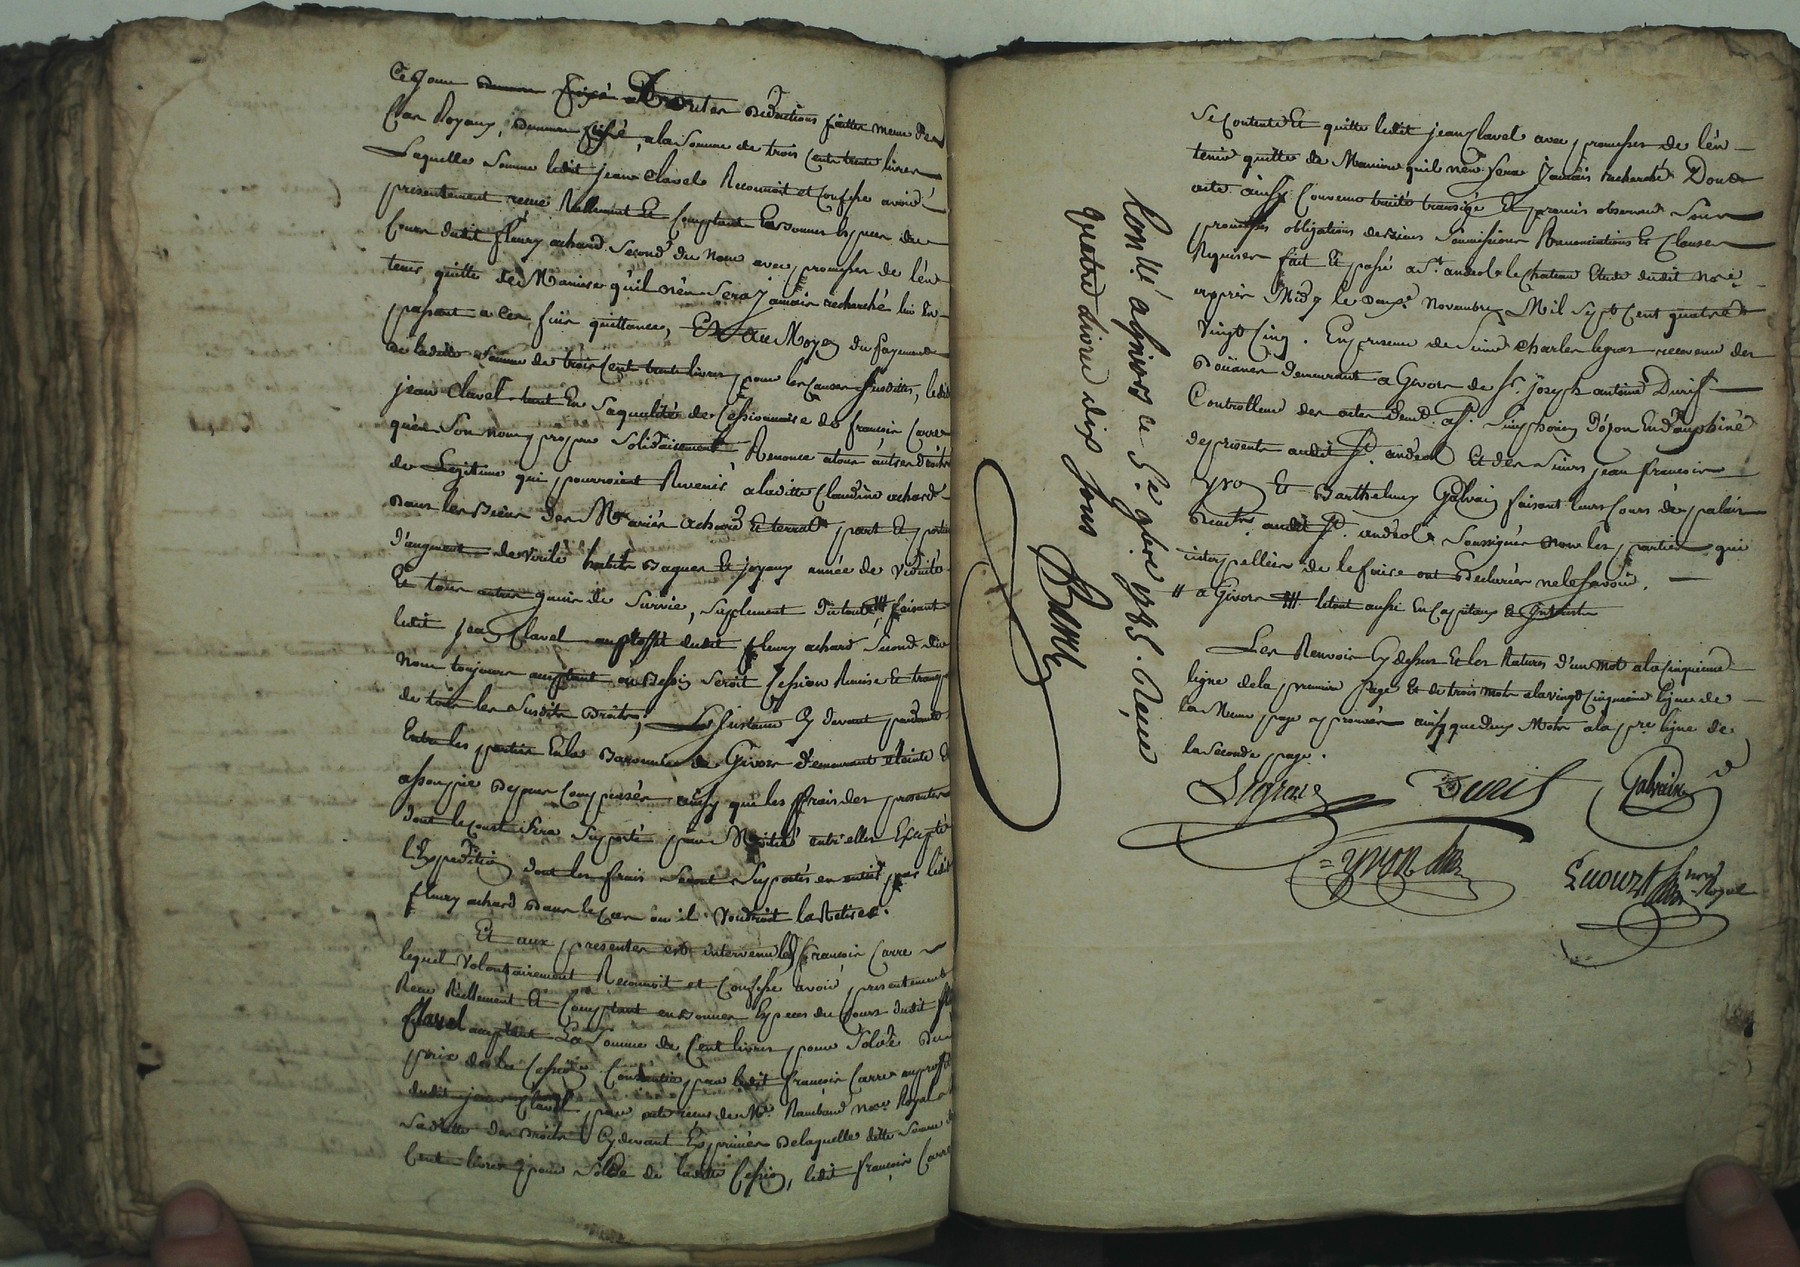 Ce Jour toutes deductions faittes meme des
Cas Royaux, demeure fixé, a la Somme de trois Cents trente livres
Laquelle Somme ledit jean Clavel Reconnoit et Confesse avoir
presentement receue Reellement Et Comptant En bonnes Especes de
Cours dudit fleury achard Second du Nom avec promesse de l'en
tenir quitte de Maniere qu'il n'en Sera jamais recherché lui En
passant a ces fins quittance, Et au Moyen du payement
de ladite Somme de trois Cents trente livres, pour les Causes Susdittes, ledit
jean Clavel tant En Sa qualité de Cessionnaire de françois Carre
qu'en Son nom propre Solidairement Renonce a tous autres droits
de Legitime qui pourroient Revenir a laditte Claudine achard
dans les biens des Mariés achard Et terrat part Et portion
d'augment de virile habits Bagues Et joyaux année de viduité
Et tous autres gains de Survie, Suplement du tout, faisant
ledit jean Clavel au profit dudit fleury achard Second du
Nom toujours acceptant au besoin Seroit Cession Remise et transport
de tous les Susdits droits, L'instance Cy devant pendante
Entre les parties En la Baronnie de Givors demeurant éteinte Et
assoupie depens Compensés ainsy que les frais des presentes
dont le Cout Sera Suporté par Moitié entr'elles Excepté
l'Expedition dont les frais Seront Suportés en entier par ledit
fleury achard dans le Cas ou il Voudroit la Retirer.
Et aux presentes est intervenu ledit françois Carre
lequel Volontairement Reconnoit et Confesse avoir presentement
Receu Reellement Et Comptant en bonnes Especes du Cours dudit
Clavel acceptant La Somme de Cent livres pour Solde du
prix de la Cession Consentie par ledit françois Carre au profit
dudit jean Clavel par acte receu de Me Rambaud Nore Royal
Sa datte des droits Cy devant Exprimés de laquelle ditte Somme de
Cent livres pour Solde de laditte Cession, ledit françois Carre
Se Contente Et quitte ledit jean Clavel avec promesse de l'en
tenir quitte de Maniere qu'il n'en Sera jamais recherché Dont
acte ainsy Convenu traité transigé Et promis observer Sous
promesses obligations de biens Soumissions Renonciations Et Clauses
Requises fait Et passé a St andeol le chateau Etude dudit Nore
apprès Midy le deuxe Novembre Mil Sept Cent quatre
Vingt Cinq. En presence de Sieur Charles legras receveur des
Douanes demeurant a Givors de Sr joseph antoine Durif
Controlleur des actes demt. a St. Simphorien d'ozon En dauphiné
de present audit St. andeol Et des Sieurs jean francois
yvon Et Barthelemy Galvain faisant leurs jours de palais
audit St. andeol Soussignés non les parties qui
interpellées de le faire ont Declarées ne le Savoir.
" a Givors # le tout aussi En Capitaux Et Interets
Les Renvois Cy dessus Et les Ratures d'un Mot a la Cinquieme
ligne de la premiere page Et de trois Mots a la vingt Cinquieme ligne de
la Meme page approuvés ainsy que deux Mots a la pre ligne de
la Seconde page.
Legras Durif Galvain
yvon
nore Royal
Conllé a Givors ce 5e 9bre 1785. Reçu
quatre livres dix sous